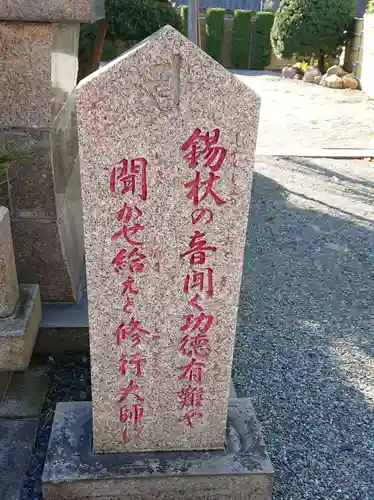 錫杖の音聞く功徳有難や
聞かせ給えと修行大師